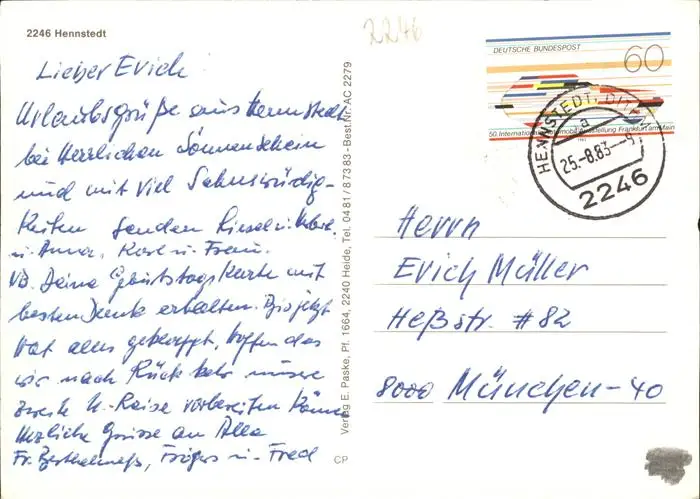 2246 Hennstedt
2246
Lieber Erich
Urlaubsgrüße aus Hennstedt
bei Herrlichen Sonnenschein
und mit viel Sehnswürdig-
keiten senden Liesel u.
u. Anna, Karl u. Frau.
PS. Deine Geburtstagskarte mit
besten Dank erhalten. Bis jetzt
hat alles geklappt, hoffen das
wir nach Rückkehr unsere
zweite U.-Raise vorbereiten können
Herzliche Grüsse an Alle
Fr. u. Fred
Verlag E. Paske, Pf. 1664, 2240 Heide, Tel. 0481 / 87383 - Best.Nr. AC 2279
CP
DEUTSCHE BUNDESPOST
60
50. Internationale Automobil-Ausstellung Frankfurt am Main
1983
HENNSTEDT, DITHM
a
25.-8.83.--9
2246
Herrn
Erich Müller
Heßstr. #82
8000 München-40